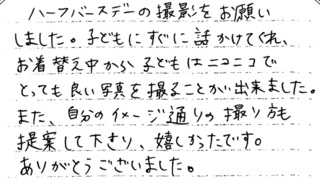 ハーフバースデーの撮影をお願い
しました。子どもにすぐに話かけてくれ、
お着替え中から子どもはニコニコで
とっても良い写真を撮ることが出来ました。
また、自分のイメージ通りの撮り方も
提案して下さり、嬉しかったです。
ありがとうございました。